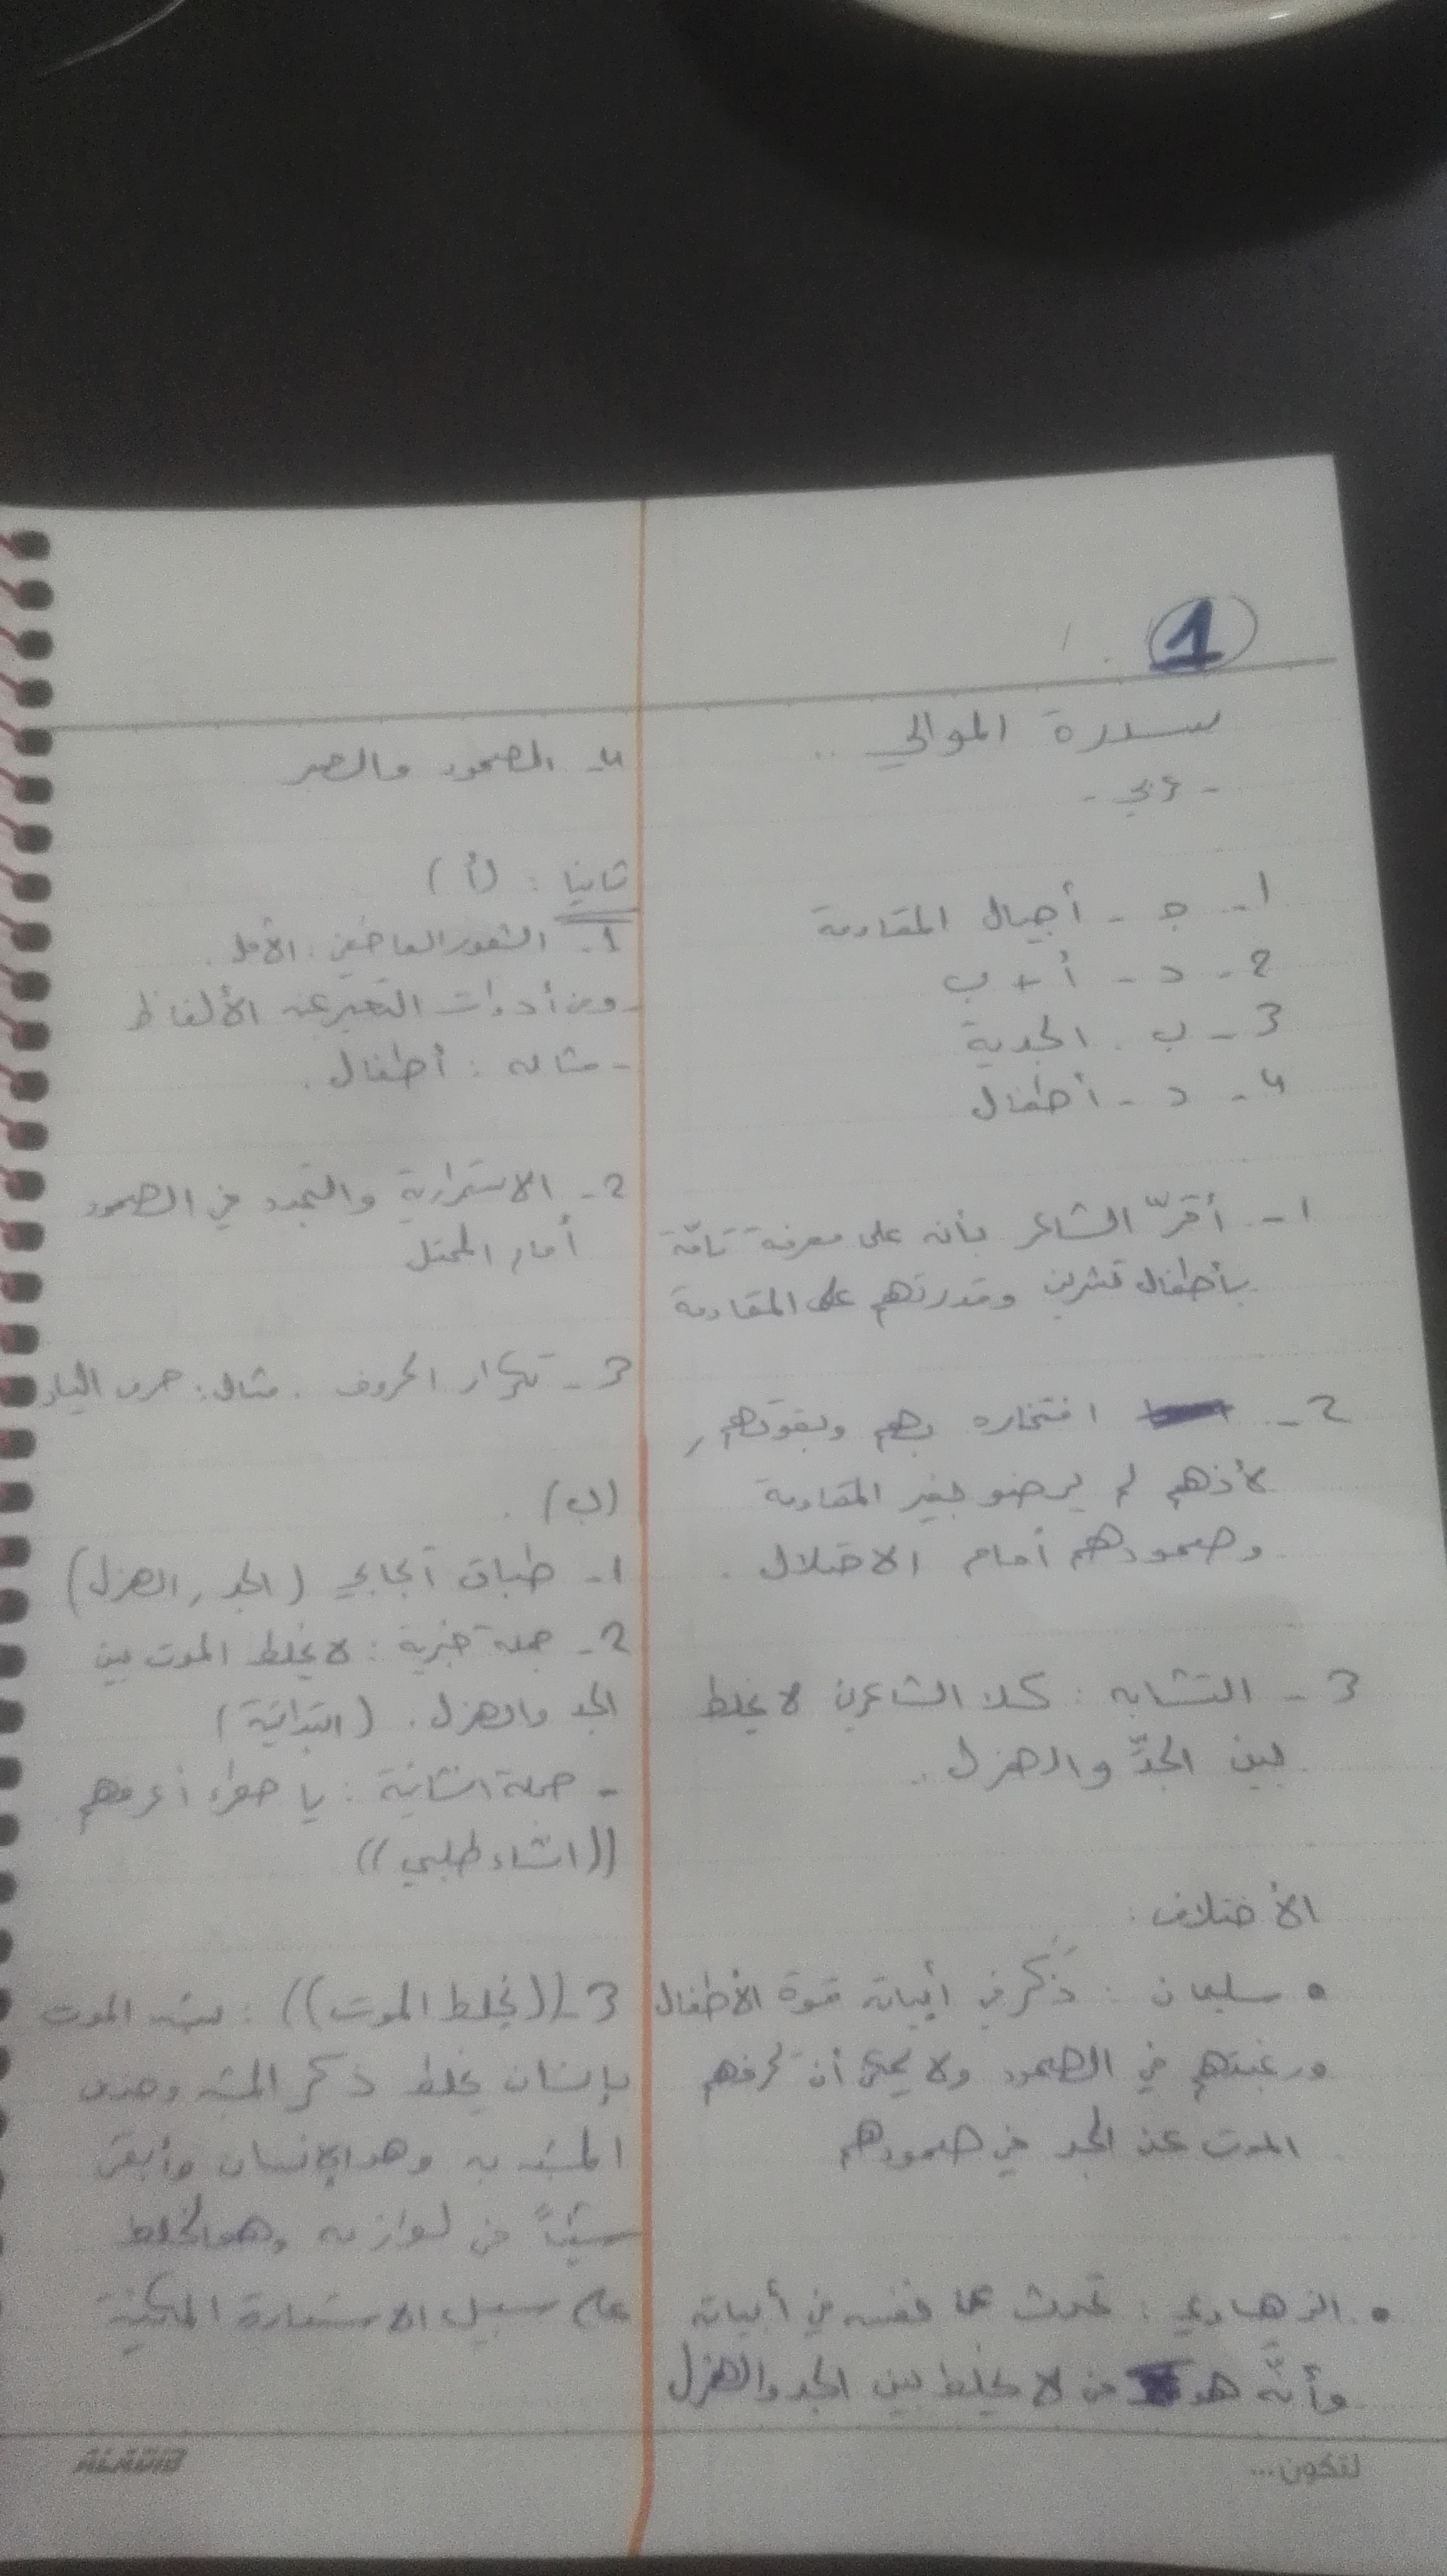 1
سدرة الموالي ..
- عربي -
1- ج - أجيال المقاومة
2- د - أ + ب
3- ب. الجدية
4- د - أطفال
1- أقرّ الشاعر بأنه على معرفة تامّة
بأطفال تشرين وقدرتهم على المقاومة
2- افتخاره بهم وبقوتهم,
لأنهم لم يرضو بغير المقاومة
وصمودهم أمام الاحتلال.
3- التشابه : كلا الشاعرين لا يخلط
بين الجدّ والهزل..
الأختلاف :
• سليمان : ذَكر في أبياته قوة الأطفال
ورغبتهم في الصمود ولا يمكن أن تحرفهم
الموت عن الجد في صمودهم
• الزهاوي : تحدث عن نفسه في أبياته
وأنّه هو من لا يخلط بين الجد والهزل
4- الصمود والصبر
ثانيا : (أ)
1- الشعور العاطفي : الأمل.
- ومن أدوات التعبير عنه الألفاظ
- مثاله : أطفال.
2- الاستمرارية والتجدد في الصمود
أمام المحتل
3- تكرار الحروف . مثال : حرف الياء
(ب).
1- طباق آيجابي (الجد , الهزل)
2- جملة خبرية : لا يخلط الموت بين
الجد والهزل. (ابتدائية)
- جملة انشائية : يا أعرفهم
((انشاء طلبي))
3- ((يخلط الموت)) : شبه الموت
بإنسان يخلط ذكر المشبه وحذف
المشبه به وهو الإنسان وأبقى
شيئاً من لوازمه وهو الخلط
على سبيل الاستعارة المكنية
لتكون...
ALADIB